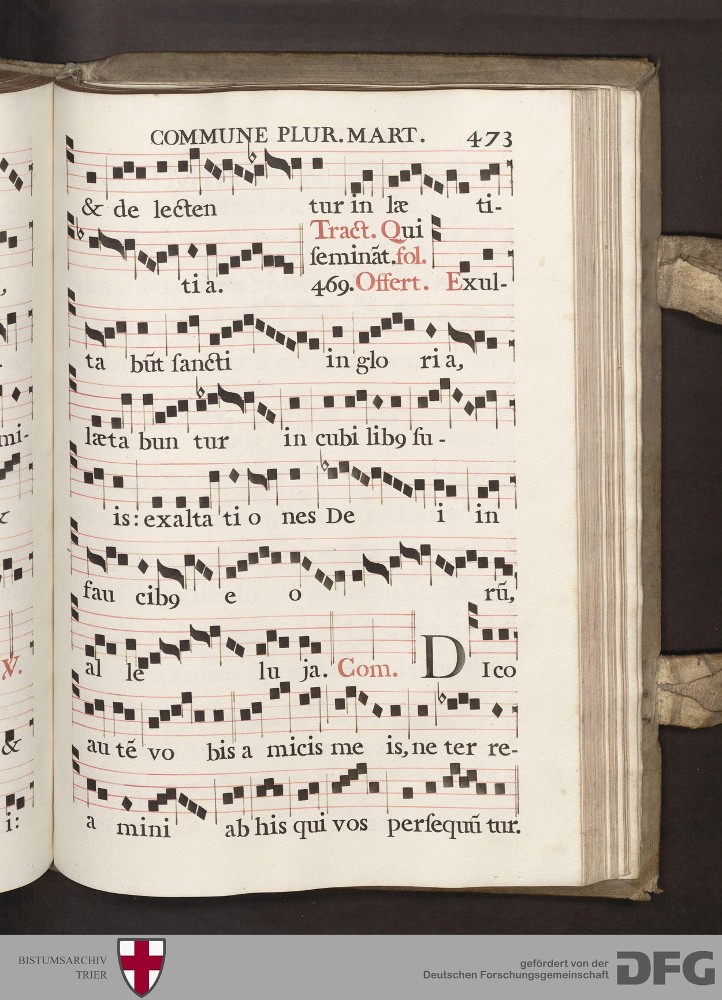 COMMUNE PLUR. MART. 473
& de lecten tur in læ ti-
ti a.
Tract. Qui
seminãt. fol.
469. Offert. Exul-
ta bũt sancti in glo ri a,
læta bun tur in cubi lib9 su-
is: exalta ti o nes De i in
fau cib9 e o rũ,
al le lu ja. Com. D Ico
au tẽ vo bis a micis me is, ne ter re-
a mini ab his qui vos persequũ tur.
,
mi-
&
V.
&
i:
BISTUMSARCHIV
TRIER
gefördert von der
Deutschen Forschungsgemeinschaft
DFG